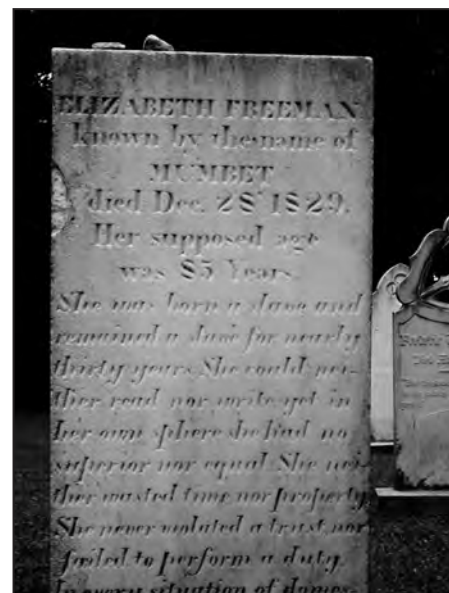 ELIZABETH FREEMAN
known by the name of
MUMBET
died Dec. 28 1829.
Her supposed age
was 85 Years.
She was born a slave and
remained a slave for nearly
thirty years. She could nei-
ther read nor write yet in
her own sphere she had no
superior nor equal. She nei-
ther wasted time nor property.
She never violated a trust nor
failed to perform a duty.
In every situation of domes-